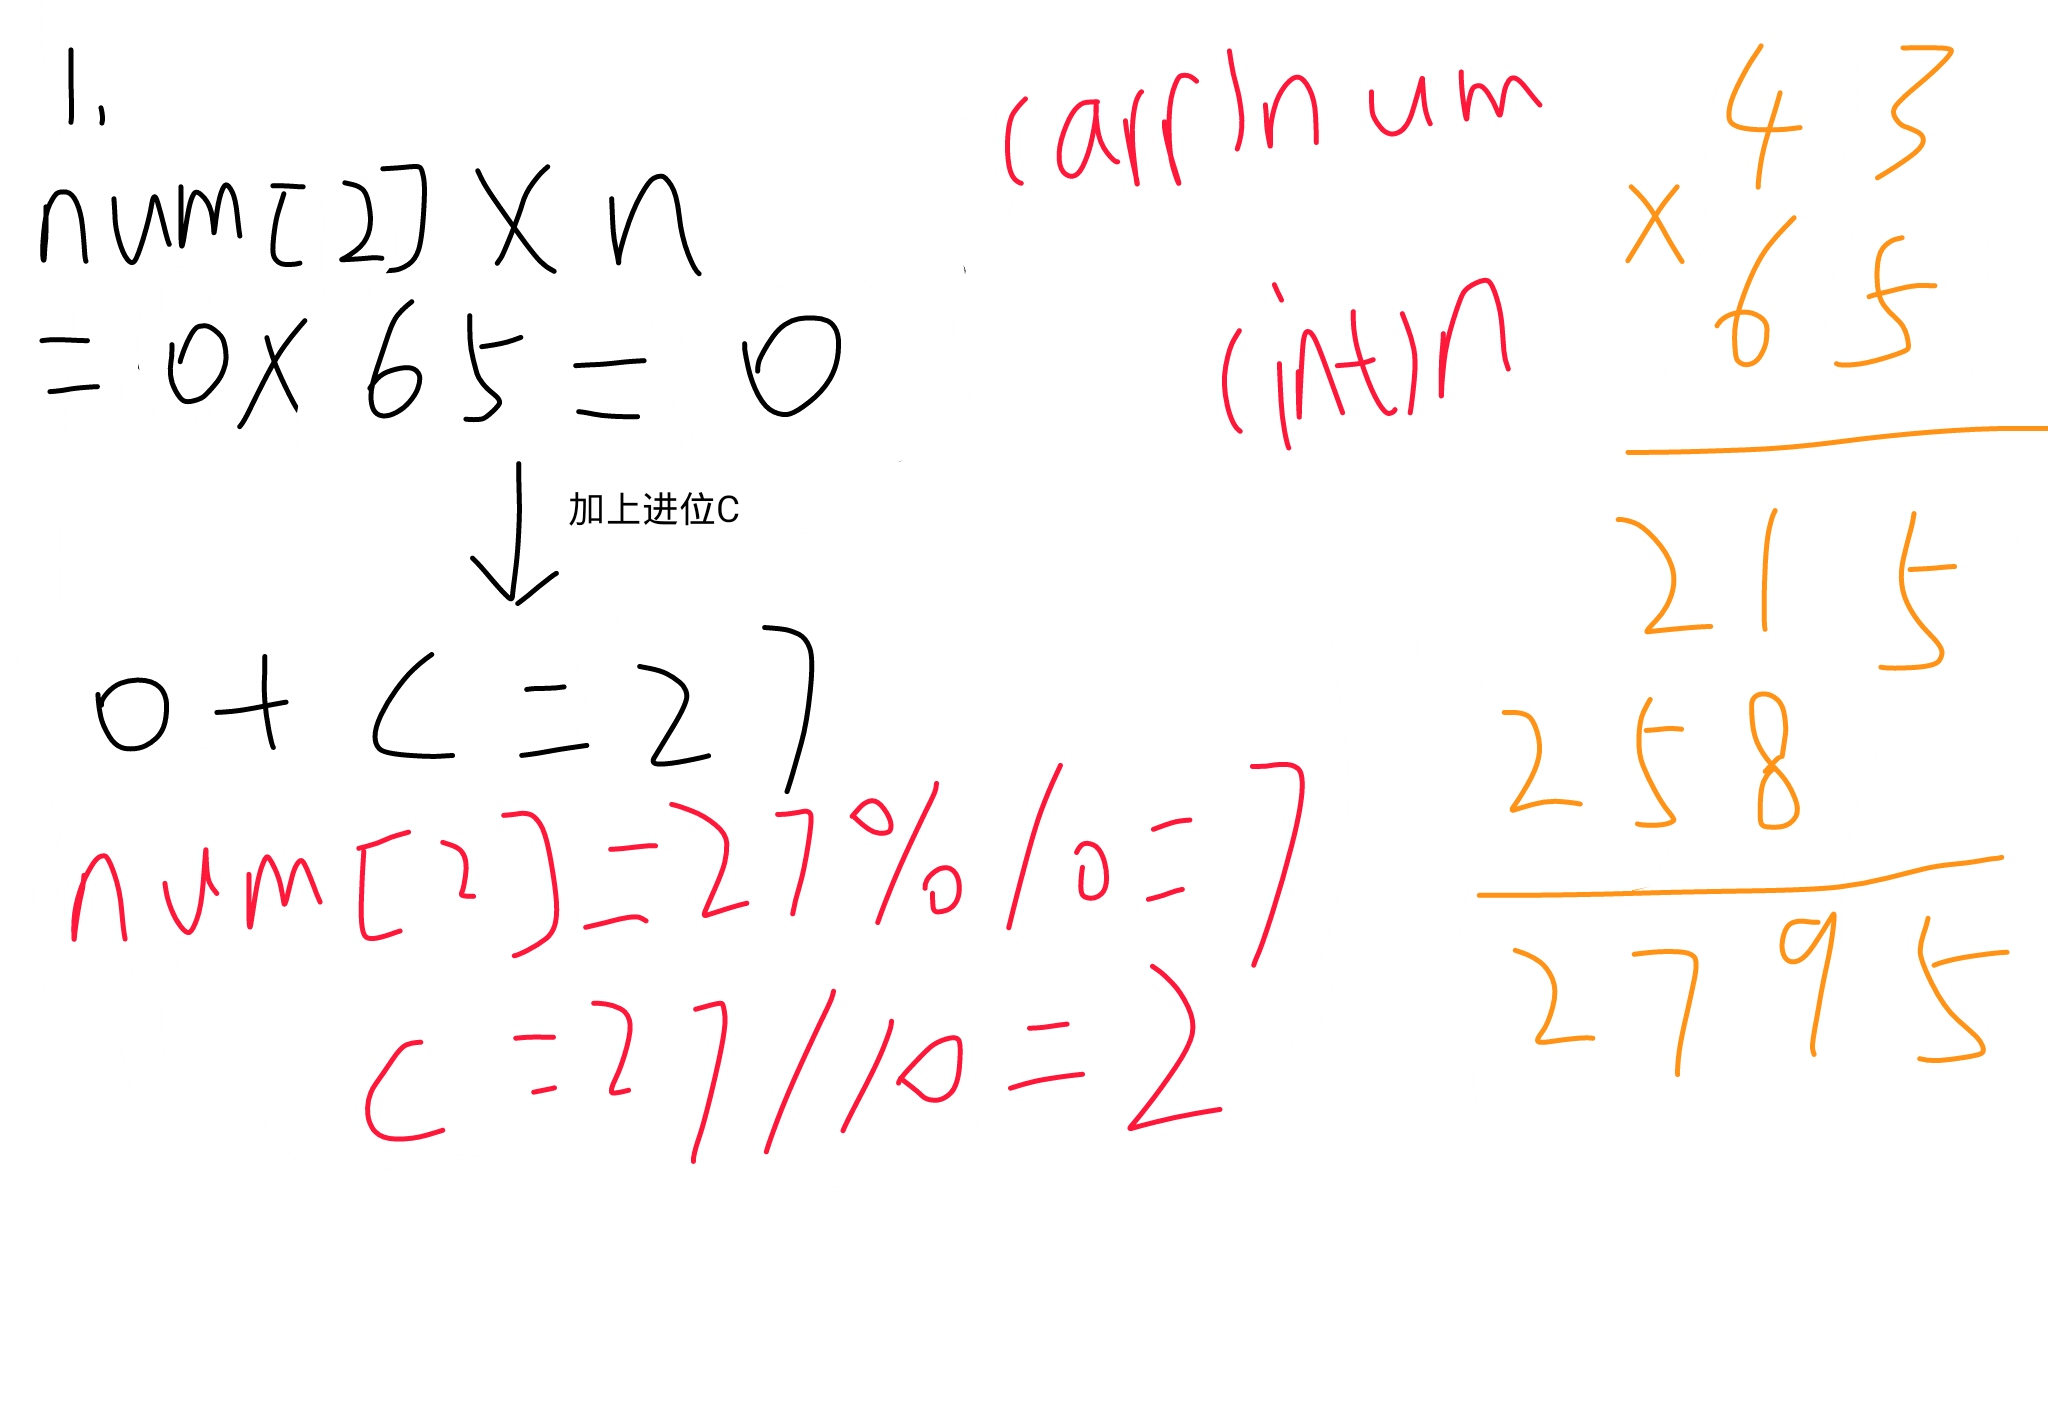 1.
num[2]×n
=0×65=0
加上进位C
0+C=27
num[2]=27%10=7
C=27/10=2
(arr)num
(int)n
43
×65
215
258
2795